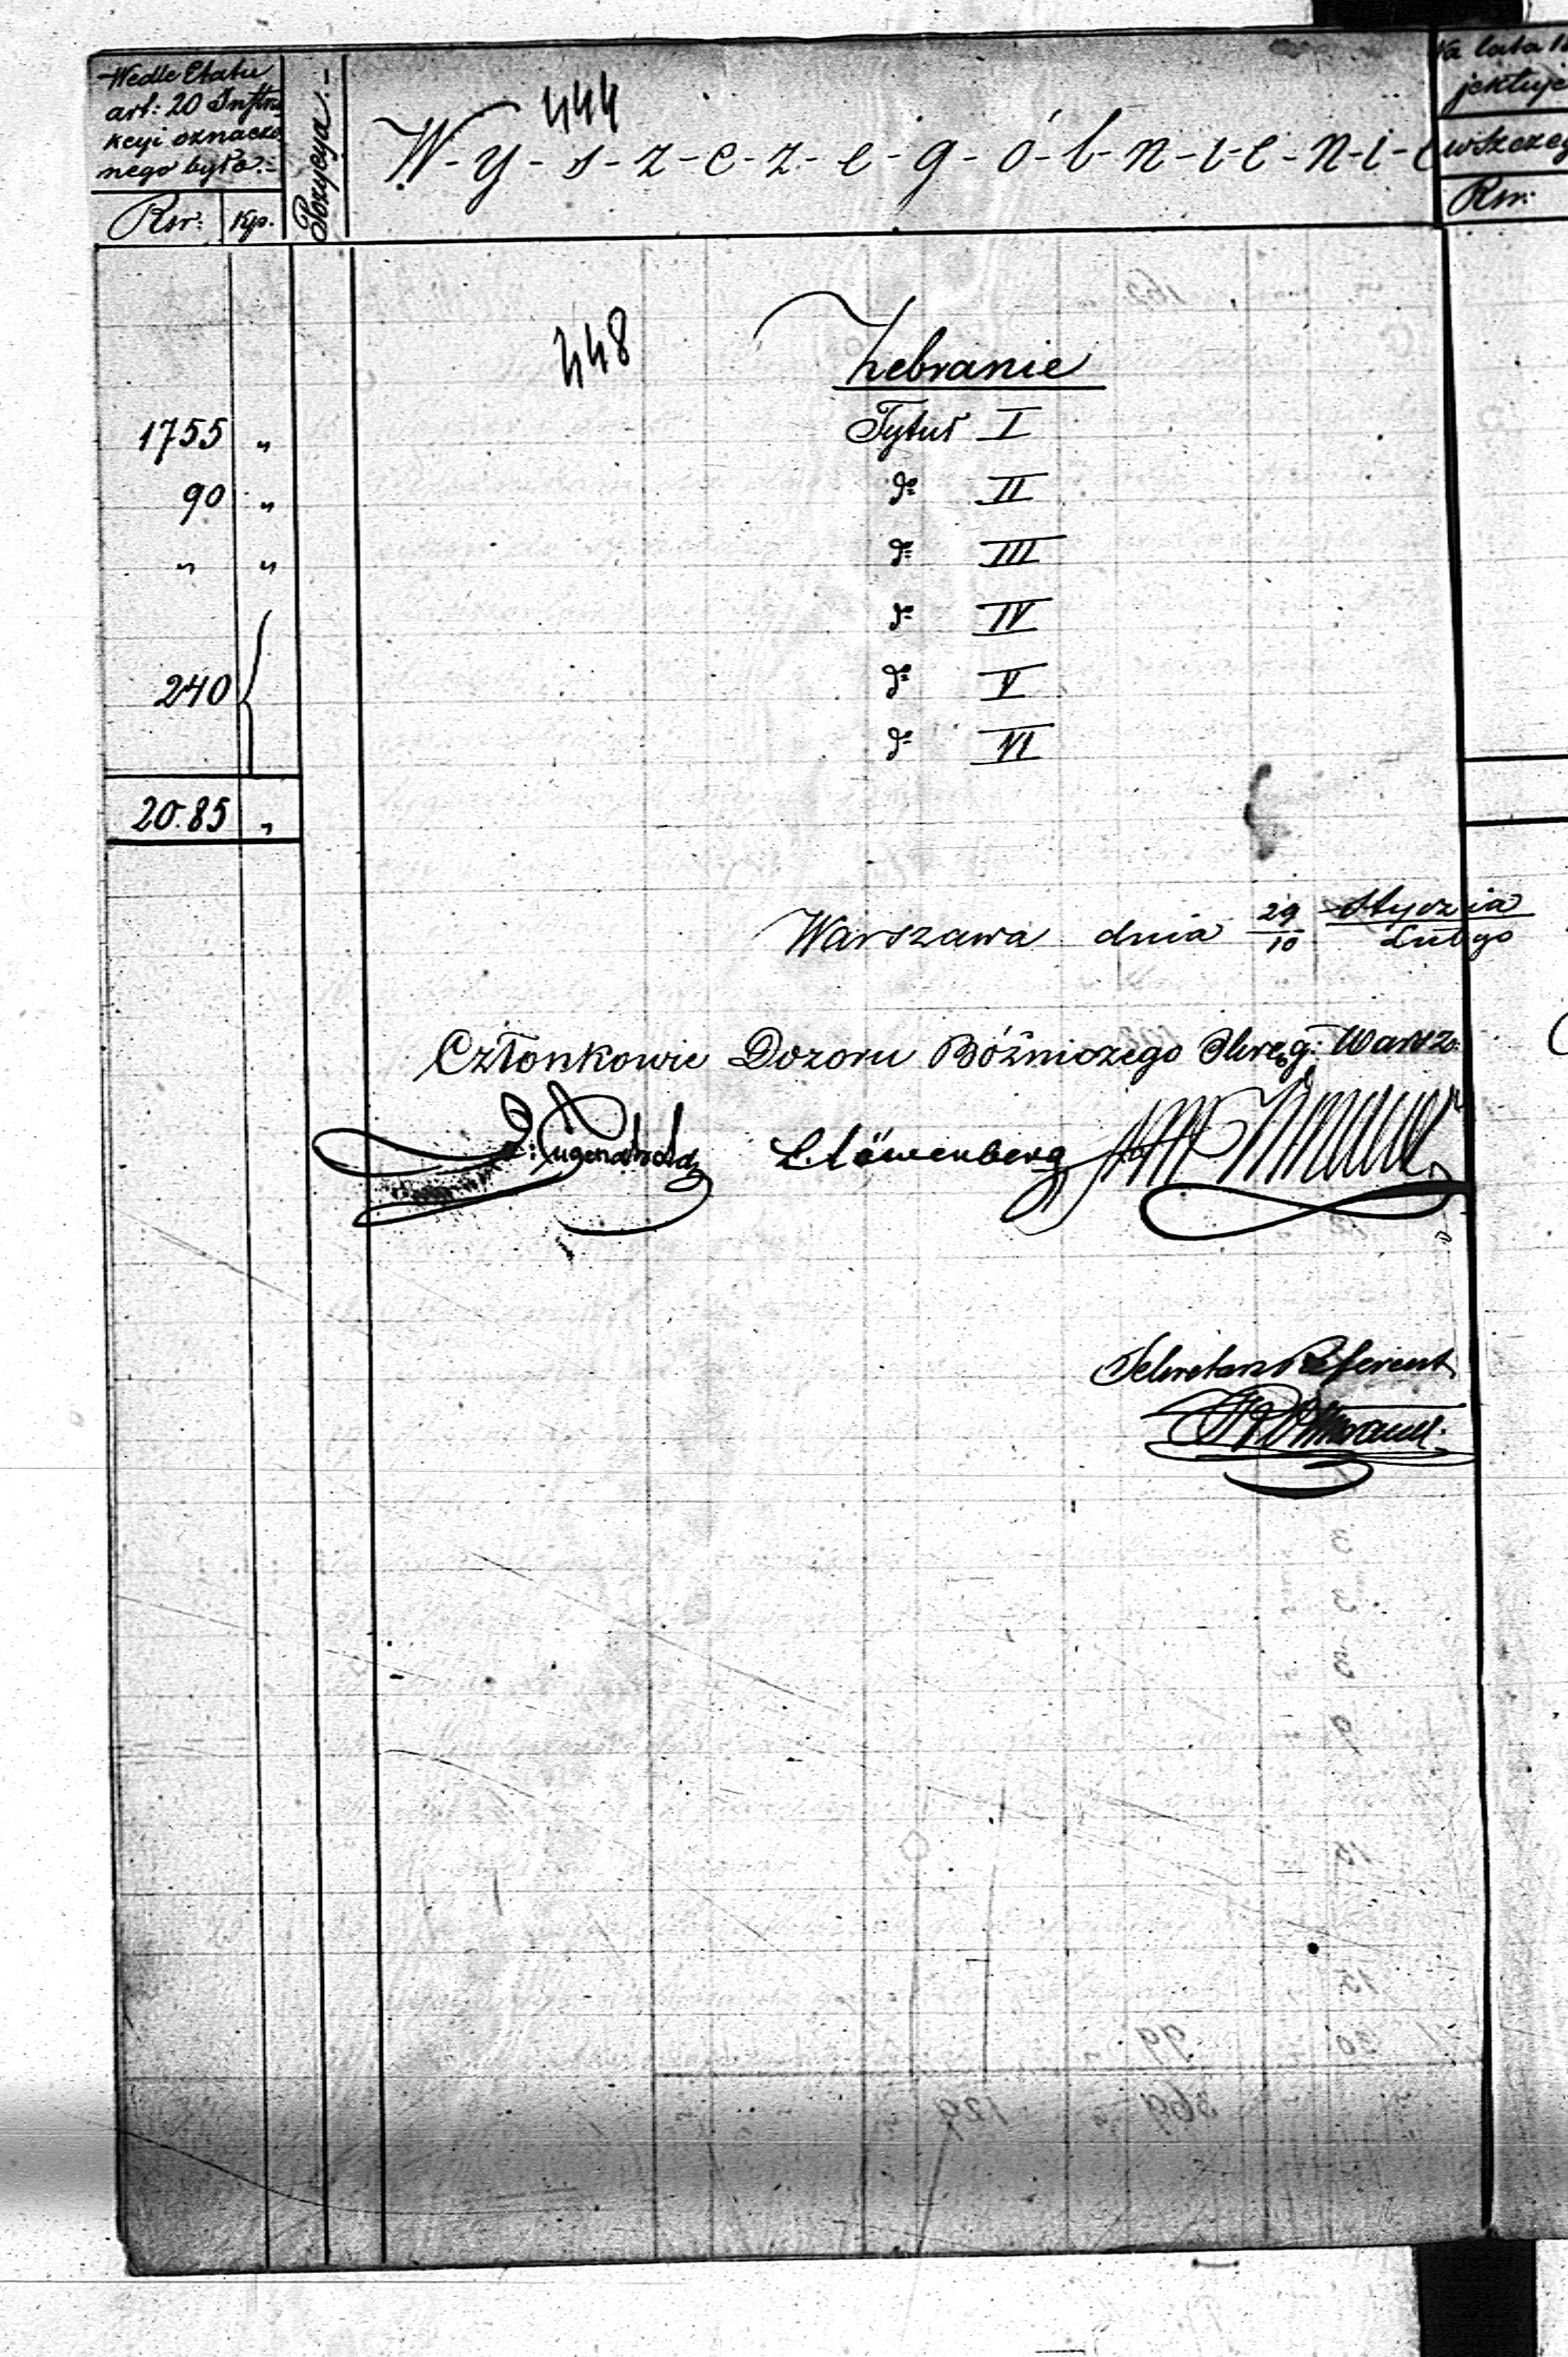 Wedle Etatu
art: 20 Instru
kcyi oznaczo
nego było.-
Rsr: Kp.
Pozycya.-
444
W-y-s-z-c-z-e-g-ó-l-n-i-e-n-i-e
Na lata
jektuje
wszczeg
Rsr:
448
Zebranie
1755 „ Tytuł I
90 „ do II
„ „ do III
do IV
240 do V
do VI
20.85 „
Warszawa dnia 29/10 Stycznia/Lutego
Członkowie Dozoru Bóżniczego Okręg: Warsz:
L. Löwenberg
Sekretarz Referent